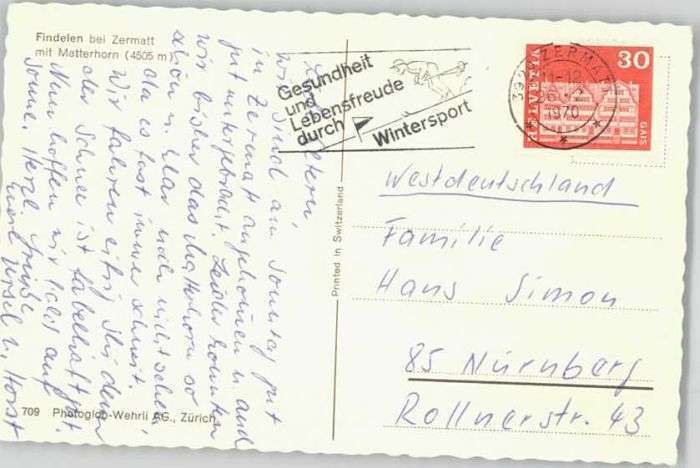 Findelen bei Zermatt
mit Matterhorn (4505 m)
Gesundheit
und
Lebensfreude
durch
Wintersport
3920 ZERMATT
1970
HELVETIA
30
GAIS
Liebe Eltern,
wir sind am Sonntag gut
in Zermatt angekommen u. sind
gut untergebracht. Leider konnten
wir bisher das Matterhorn so
schön u. klar noch nicht sehen,
da es fast immer schneit.
Wir fahren eifrig Ski, denn
der Schnee ist fabelhaft gut.
Nun hoffen wir halt auf
Sonne. Herzl. Grüße
Eure Ursel u. Horst
Printed in Switzerland
Westdeutschland
Familie
Hans Simon
85 Nürnberg
Rollnerstr. 43
709 Photoglob-Wehrli AG., Zürich